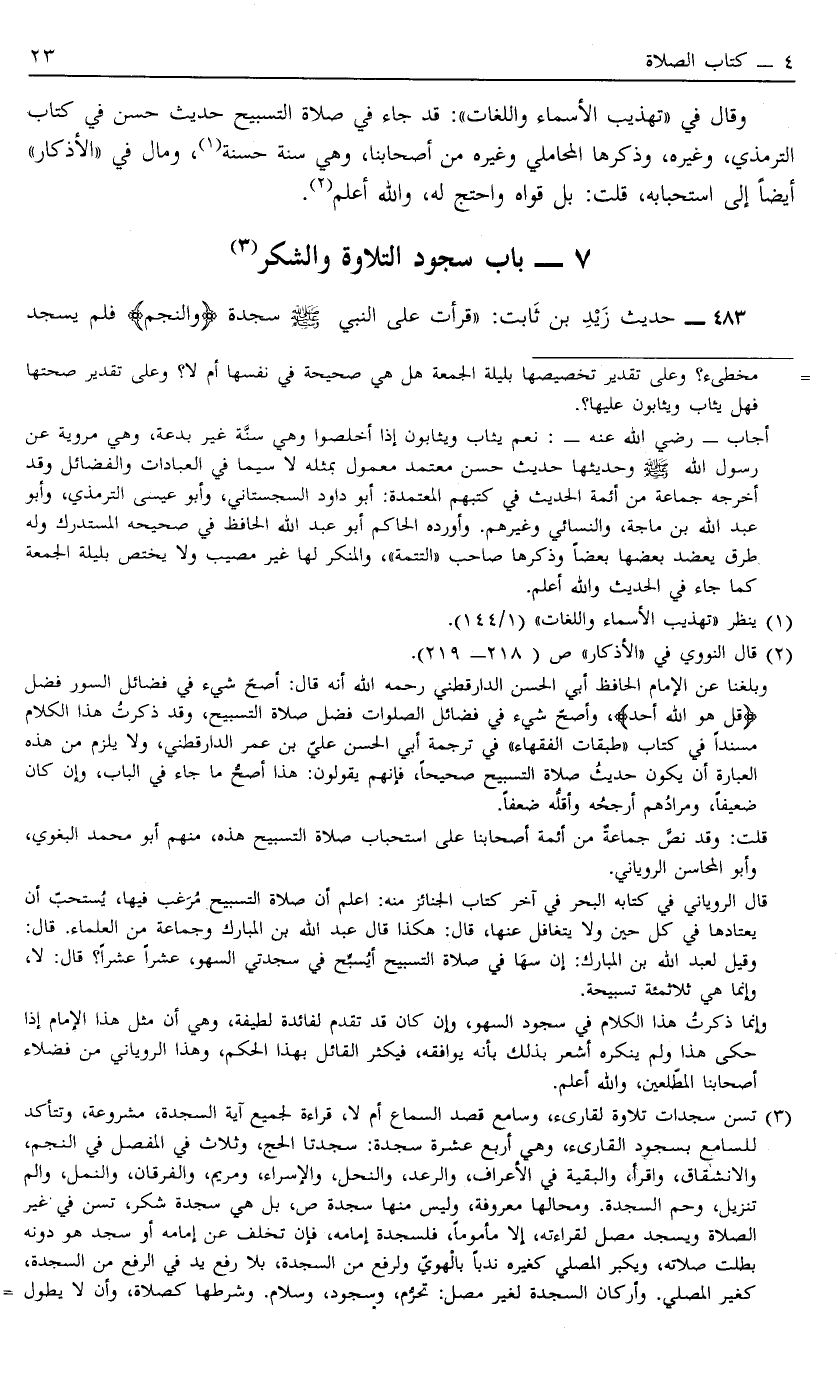 ٤ ــ كتاب الصلاة ٢٣
وقال في «تهذيب الأسماء واللغات»: قد جاء في صلاة التسبيح حديث حسن في كتاب
الترمذي، وغيره، وذكرها المحاملي وغيره من أصحابنا، وهي سنة حسنة(١)، ومال في «الأذكار»
أيضاً إلى استحبابه، قلت: بل قواه واحتج له، والله أعلم(٢).
٧ ــ باب سجود التلاوة والشكر(٣)
٤٨٣ ــ حديث زَيْدِ بن ثَابت: «قرأت على النبي ﷺ سجدة ﴿والنجم﴾ فلم يسجد
= مخطىء؟ وعلى تقدير تخصيصها بليلة الجمعة هل هي صحيحة في نفسها أم لا؟ وعلى تقدير صحتها
فهل يثاب ويثابون عليها؟.
أجاب ــ رضي الله عنه ــ : نعم يثاب ويثابون إذا أخلصوا وهي سنَّة غير بدعة، وهي مروية عن
رسول الله ﷺ وحديثها حديث حسن معتمد معمول بمثله لا سيما في العبادات والفضائل وقد
أخرجه جماعة من أئمة الحديث في كتبهم المعتمدة: أبو داود السجستاني، وأبو عيسى الترمذي، وأبو
عبد الله بن ماجة، والنسائي وغيرهم. وأورده الحاكم أبو عبد الله الحافظ في صحيحه المستدرك وله
طرق يعضد بعضها بعضاً وذكرها صاحب «التتمة»، والمنكر لها غير مصيب ولا يختص بليلة الجمعة
كما جاء في الحديث والله أعلم.
(١) ينظر «تهذيب الأسماء واللغات» (١/١٤٤).
(٢) قال النووي في «الأذكار» ص ( ٢١٨ــ ٢١٩).
وبلغنا عن الإمام الحافظ أبي الحسن الدارقطني رحمه الله أنه قال: أصحّ شيء في فضائل السور فضل
﴿قل هو الله أحد﴾، وأصحّ شيء في فضائل الصلوات فضل صلاة التسبيح، وقد ذكرتُ هذا الكلام
مسنداً في كتاب «طبقات الفقهاء» في ترجمة أبي الحسن عليّ بن عمر الدارقطني، ولا يلزم من هذه
العبارة أن يكون حديثُ صلاة التسبيح صحيحاً، فإنهم يقولون: هذا أصحُّ ما جاء في الباب، وإن كان
ضعيفاً، ومرادُهم أرجحُه وأقلُّه ضعفاً.
قلت: وقد نصَّ جماعةٌ من أئمة أصحابنا على استحباب صلاة التسبيح هذه، منهم أبو محمد البغوي،
وأبو المحاسن الروياني.
قال الروياني في كتابه البحر في آخر كتاب الجنائز منه: اعلم أن صلاة التسبيح مُرَغب فيها، يُستحبّ أن
يعتادها في كل حين ولا يتغافل عنها، قال: هكذا قال عبد الله بن المبارك وجماعة من العلماء. قال:
وقيل لعبد الله بن المبارك: إن سهَا في صلاة التسبيح أيُسبِّح في سجدتي السهو، عشراً عشراً؟ قال: لا،
وإنما هي ثلاثمئة تسبيحة.
وإنما ذكرتُ هذا الكلام في سجود السهو، وإن كان قد تقدم لفائدة لطيفة، وهي أن مثل هذا الإمام إذا
حكى هذا ولم ينكره أشعر بذلك بأنه يوافقه، فيكثر القائل بهذا الحكم، وهذا الروياني من فضلاء
أصحابنا المطّلعين، والله أعلم.
(٣) تسن سجدات تلاوة لقارىء، وسامع قصد السماع أم لا، قراءة لجميع آية السجدة، مشروعة، وتتأكد
للسامع بسجود القارىء، وهي أربع عشرة سجدة: سجدتا الحج، وثلاث في المفصل في النجم،
والانشقاق، واقرأ، والبقية في الأعراف، والرعد، والنحل، والإسراء، ومريم، والفرقان، والنمل، والم
تنزيل، وحم السجدة. ومحالها معروفة، وليس منها سجدة ص، بل هي سجدة شكر، تسن في غير
الصلاة ويسجد مصل لقراءته، إلا مأموماً، فلسجدة إمامه، فإن تخلف عن إمامه أو سجد هو دونه
بطلت صلاته، ويكبر المصلي كغيره ندباً بالْهويّ ولرفع من السجدة، بلا رفع يد في الرفع من السجدة،
كغير المصلي. وأركان السجدة لغير مصل: تحرُّم، وسجود، وسلام. وشرطها كصلاة، وأن لا يطول =